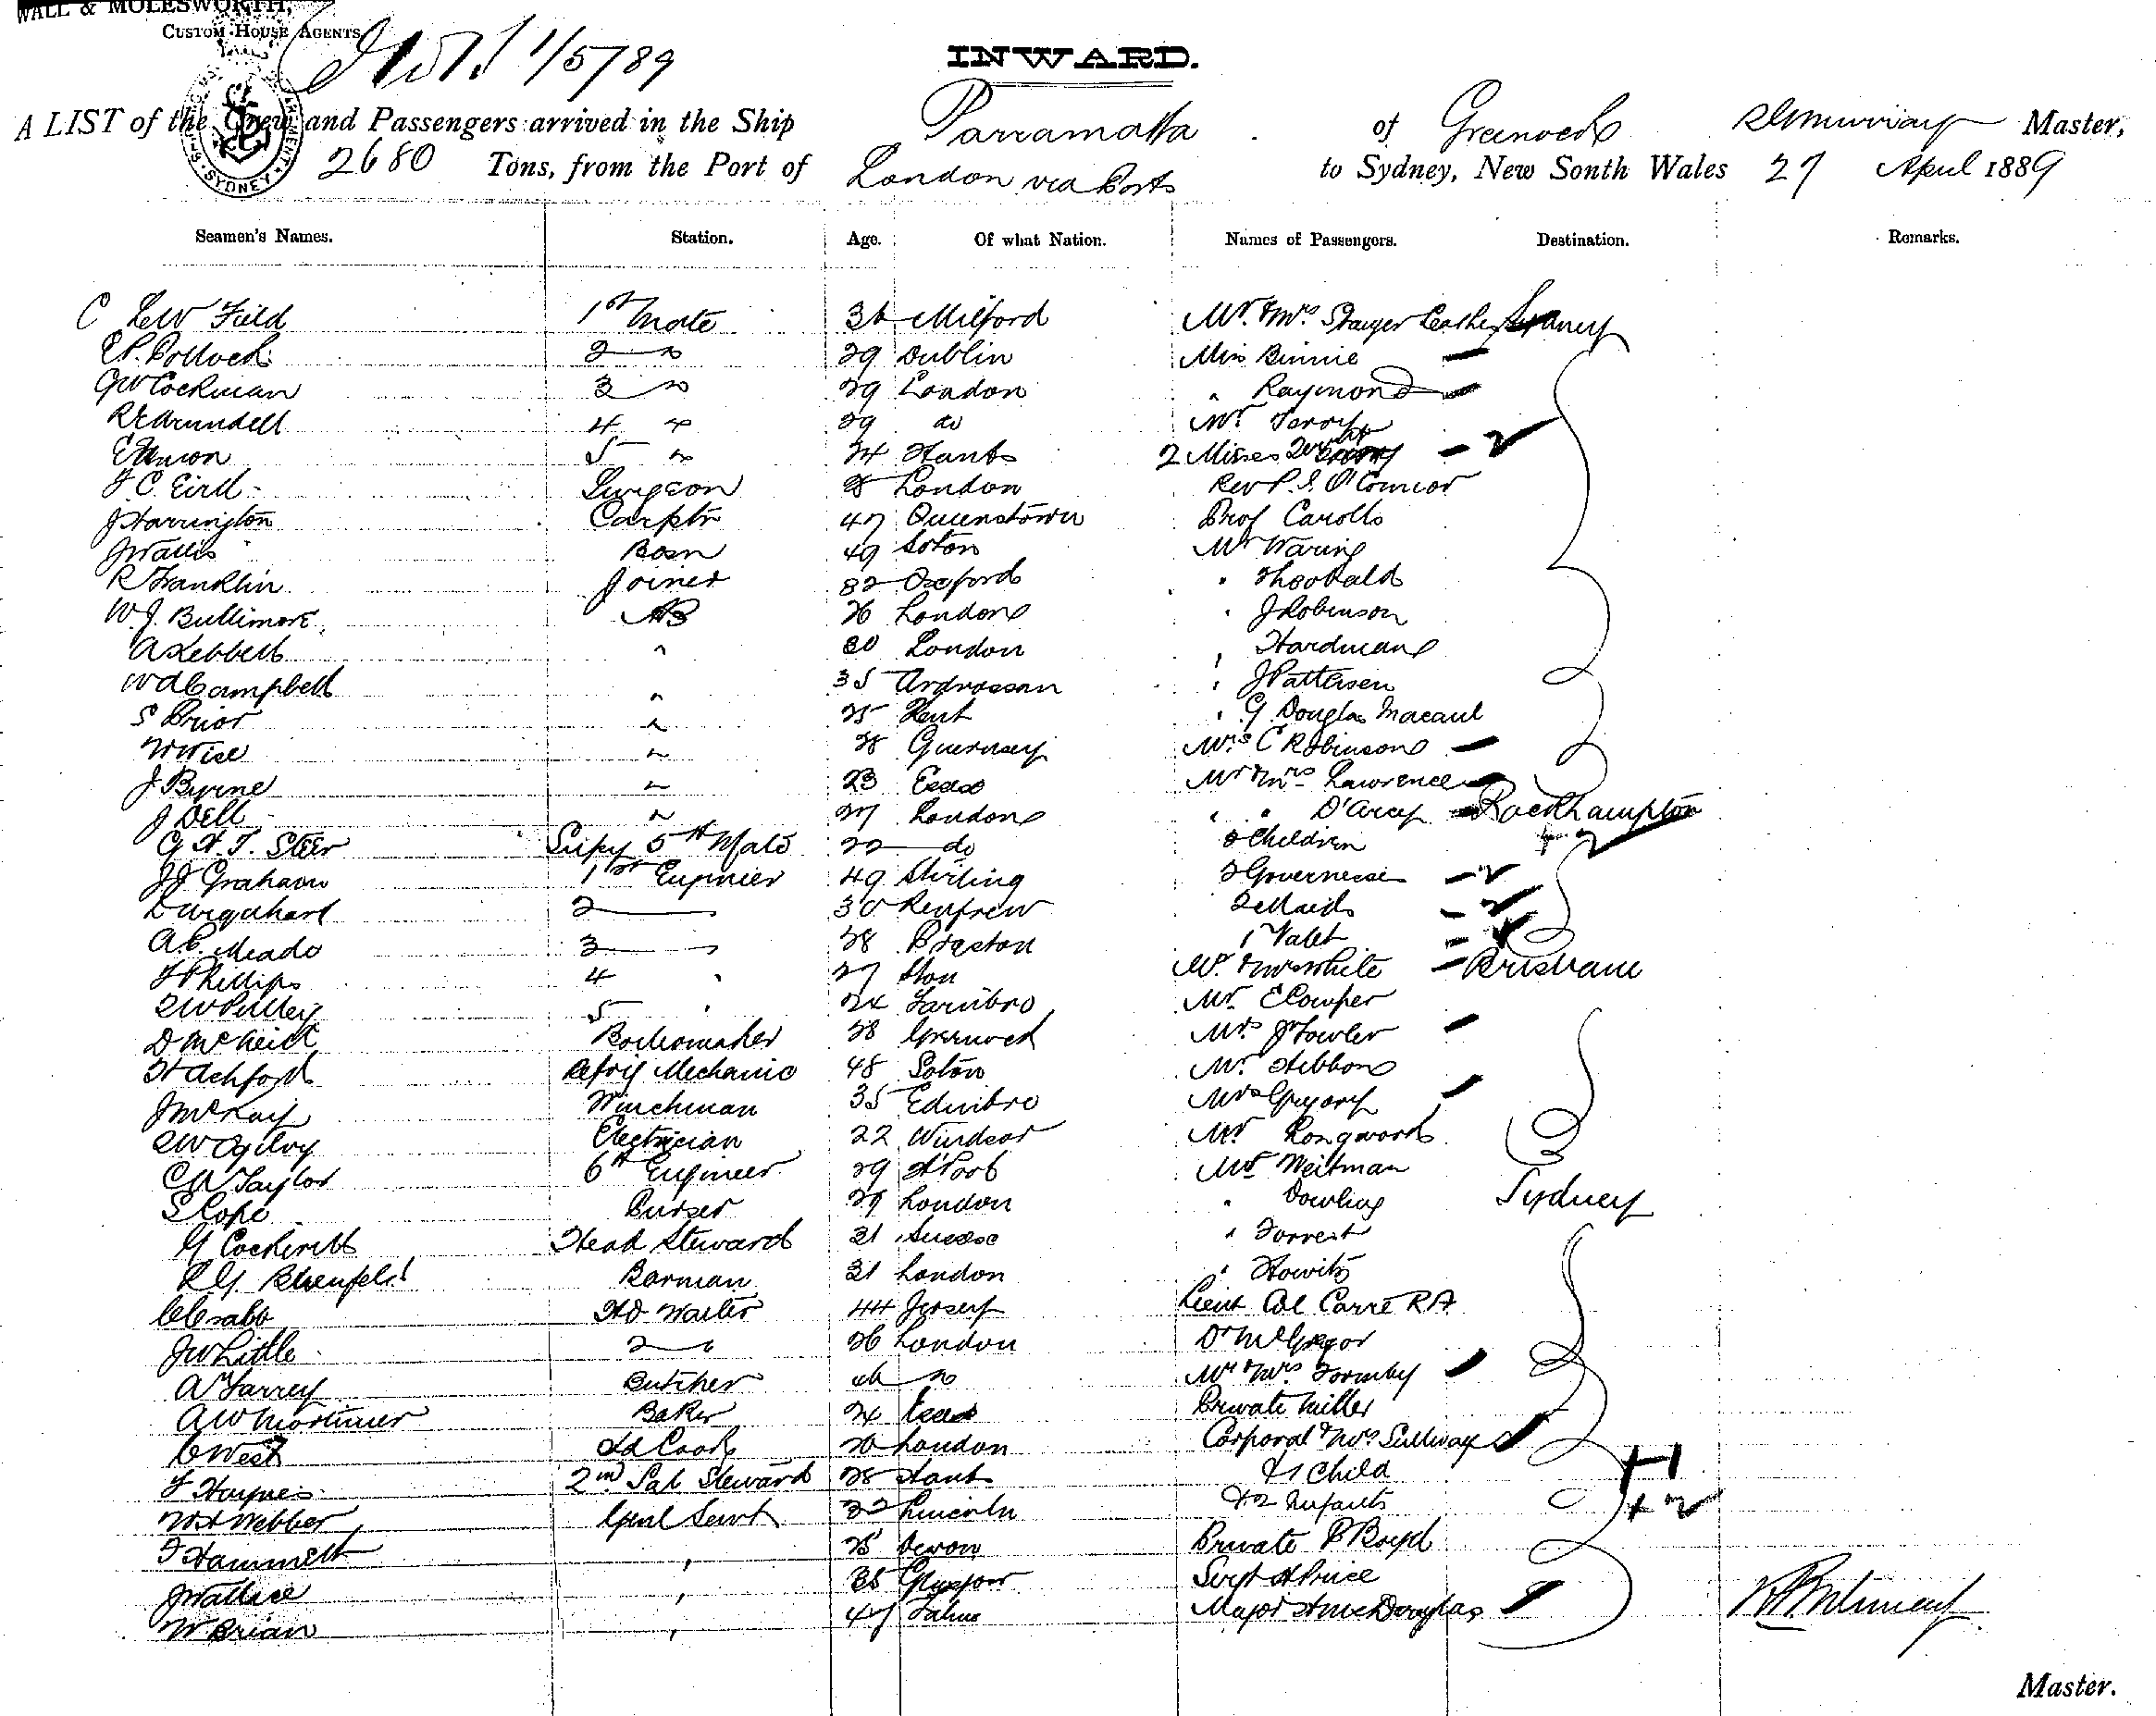 WALL & MOLESWORTH,
CUSTOM HOUSE AGENTS
1/5/89
INWARD.
A LIST of the Crew and Passengers arrived in the Ship Parramatta of Greenock Master,
2680 Tons, from the Port of London via Ports to Sydney, New South Wales 27 April 1889
SYDNEY
Seamen's Names. Station. Age. Of what Nation. Names of Passengers. Destination. Remarks.
Field 1st Mate Milford Mr. & Mrs Sydney
Pollock 2 29 Dublin Miss Binnie
GW Cockman 3 29 London " Raymond
RE Arundell 4 29 do Mr. Terry
5 24 Hants 2 Misses
Surgeon London Rev P. S. O'Connor
J Harrington Carptr 47 Queenstown Prof Carollo
J Wallis Bosn 49 Soton Mr Waring
R Franklin Joiner 32 Oxford " Theobald
W. J. Bullimore AB 26 London " J Robinson
A Kebbell " 30 London " Hardman
W A Campbell " 35 Ardrossan " J Pattersen
S Prior " 25 Kent " G Douglas Macaul
W Wise " Guernsey Mrs C Robinson
J Byrne " 23 Essex Mr & Mrs Lawrence
J Dell " 27 London " " D'Arcy Rockhampton
G H. T. Steer Supy 5th Mate 22 do Children + 2
JJ Graham 1st Engineer 49 Stirling 2 Governesses
D Urquhart 2 30 Renfrew 2 Maids
A.C. Meado 3 38 Preston 1 Valet
Phillips 4 27 Mr. & Mrs White Brisbane
5 24 Farnbro Mr. E Cowper
D McNeill Boilermaker 38 Greenock Mrs J Fowler
H Ashford Refrig Mechanic 48 Soton Mr. Hibbon
J McKay Winchman 35 Edinbro Mrs Gregory
Ogilvy Electrician 22 Windsor Mr Longworth
C W Taylor 6th Engineer 29 Mr Weitman
S Cope Purser 29 London " Dowling Sydney
G Cockerill Head Steward 31 Sussex " Forrest
Barman 31 London " Howitz
C Crabb Hd Waiter 44 Jersey Lieut Col Carré RA
JW Little 2 26 London Dr McGregor
A Farrey Butcher Mr & Mrs Formby
A W Mortimer Baker 24 Essex Private Miller
C West Ld Cook 20 London Corporal & Mrs Sullivan
F Haynes 2nd Sal Steward 28 Hants & 1 Child + 1
W H Webber Genl Servt 32 Lincoln & 2 Infants + 2
F Hammett " 25 Devon Private P Boyd
J Wallace " 35 Glasgow Sergt A Price
W Brian " 47 Major H McDouglas
Master.